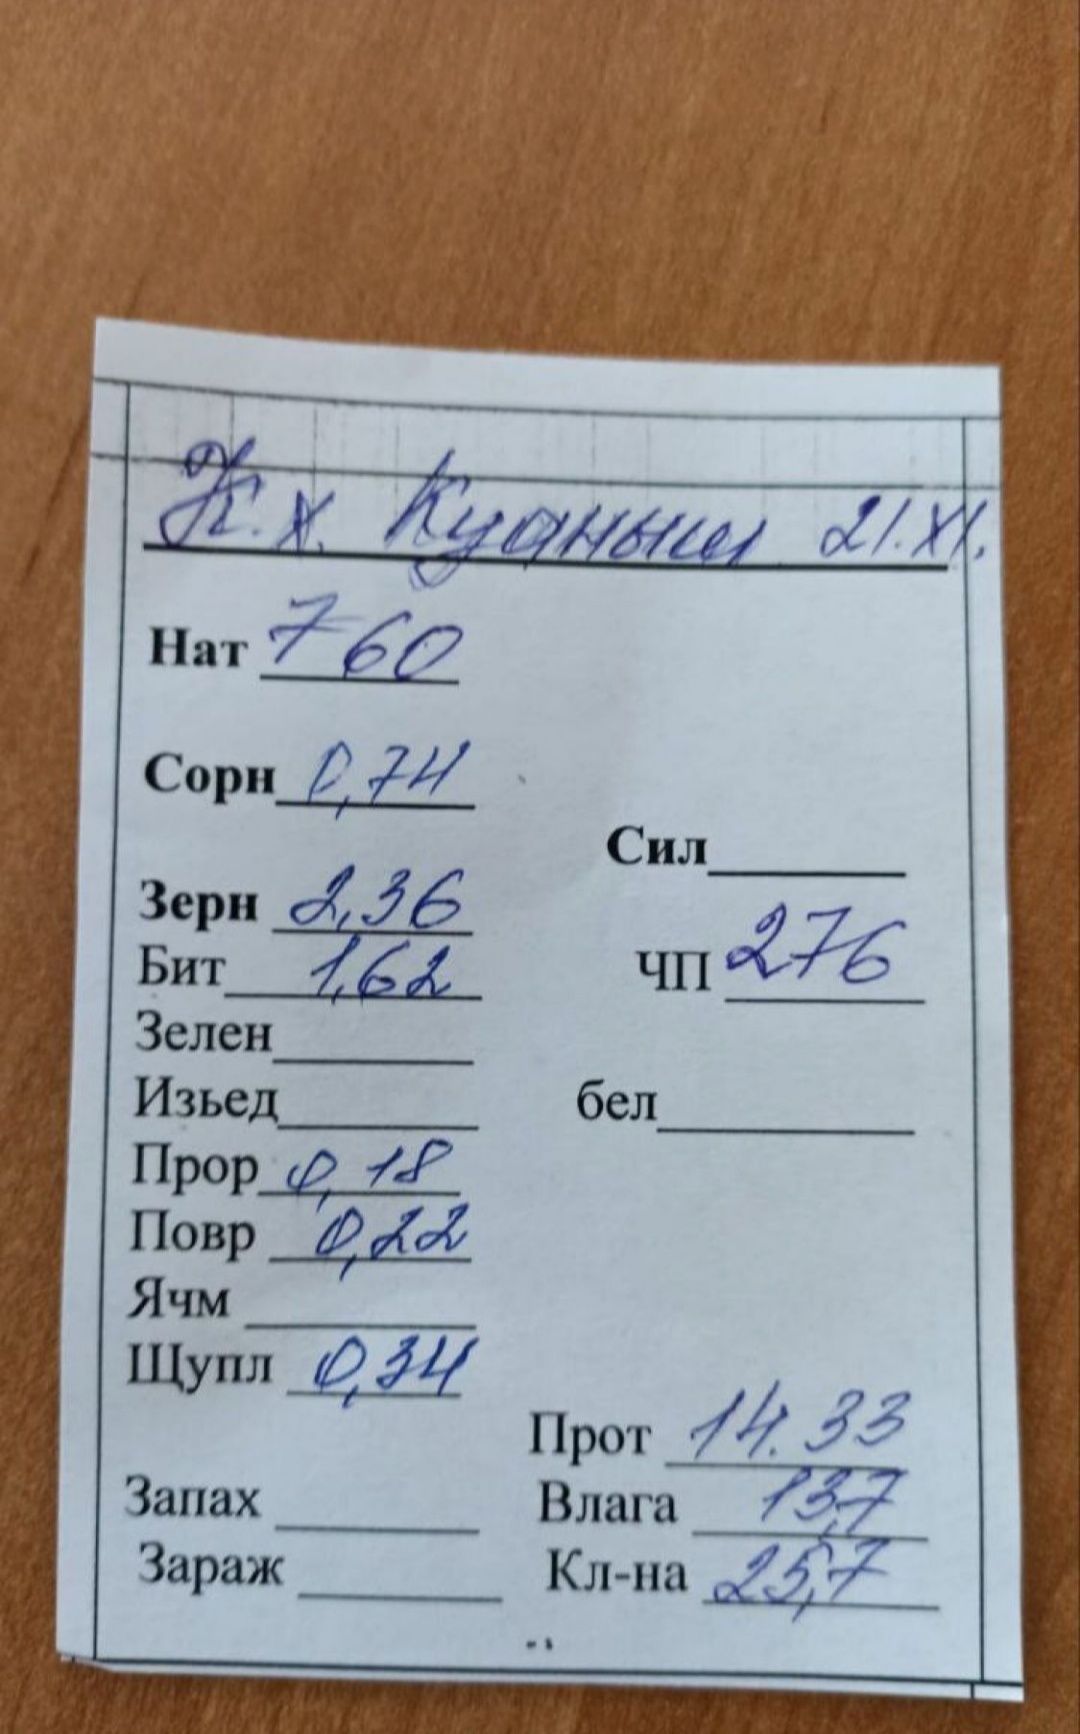 К.х. Куаныш 21.XI.
Нат 760
Сорн 0,74
Сил
Зерн 2,36
Бит 1,62
ЧП 276
Зелен
Изьед
бел
Прор 0,18
Повр 0,22
Ячм
Щупл 0,34
Прот 14.33
Запах
Влага 13,7
Зараж
Кл-на 25,7